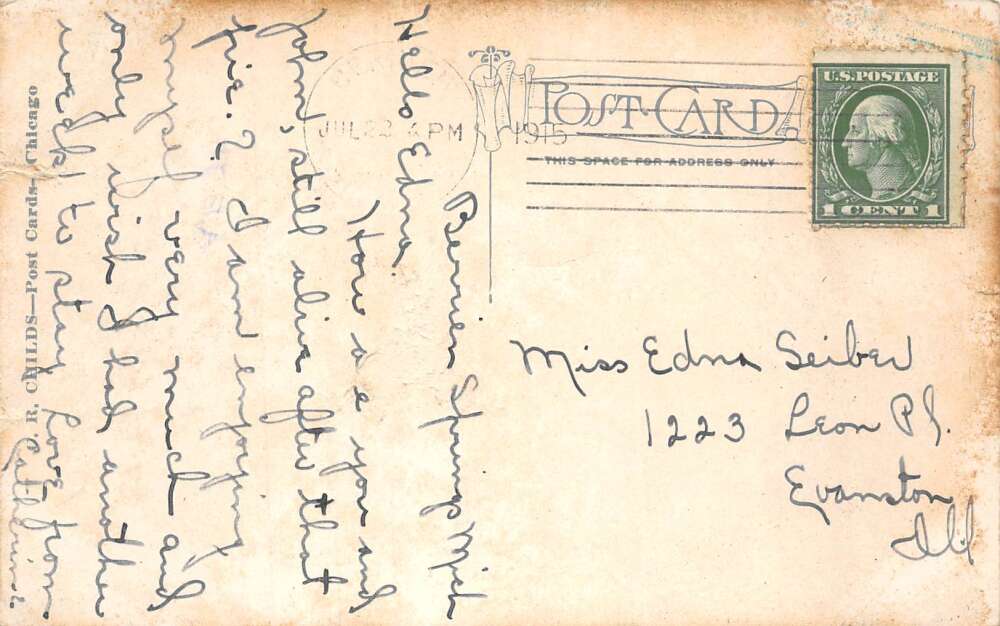 Berrien Springs Mich
Hello Edna.
How are you and
John, still alive after that
pie? I am enjoying
myself very much and
only wish I had another
week to stay
Love from
Cathrine.
J. R. CHILDS—Post Cards—Chicago
JUL 22 4 PM 1915
POST CARD
THIS SPACE FOR ADDRESS ONLY
U.S. POSTAGE
1 CENT 1
Miss Edna Seiber
1223 Leon Pl.
Evanston
Ill